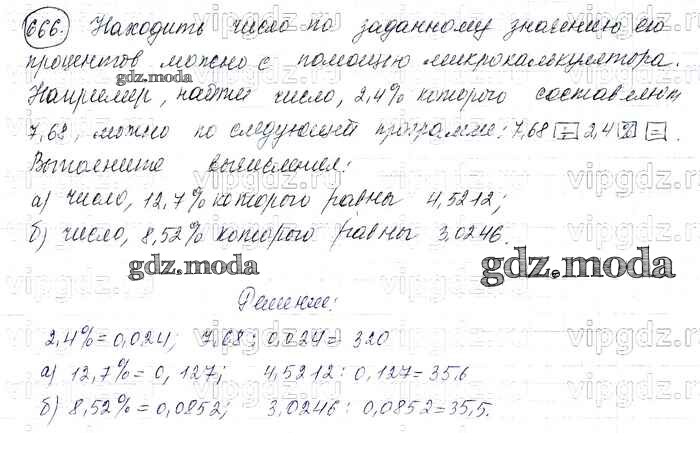 666. Находить число по заданному значению его
процентов можно с помощью микрокалькулятора.
gdz.moda
Например, найти число, 2,4% которого составляют
7,68, можно по следующей программе: 7,68 ÷ 2,4 % = .
Выполните вычисления:
а) число, 12,7% которого равны 4,5212;
б) число, 8,52% которого равны 3,0246.
gdz.moda
gdz.moda
Решение:
2,4% = 0,024; 7,68 : 0,024 = 320
а) 12,7% = 0,127; 4,5212 : 0,127 = 35,6
б) 8,52% = 0,0852; 3,0246 : 0,0852 = 35,5.
vipgdz.ru